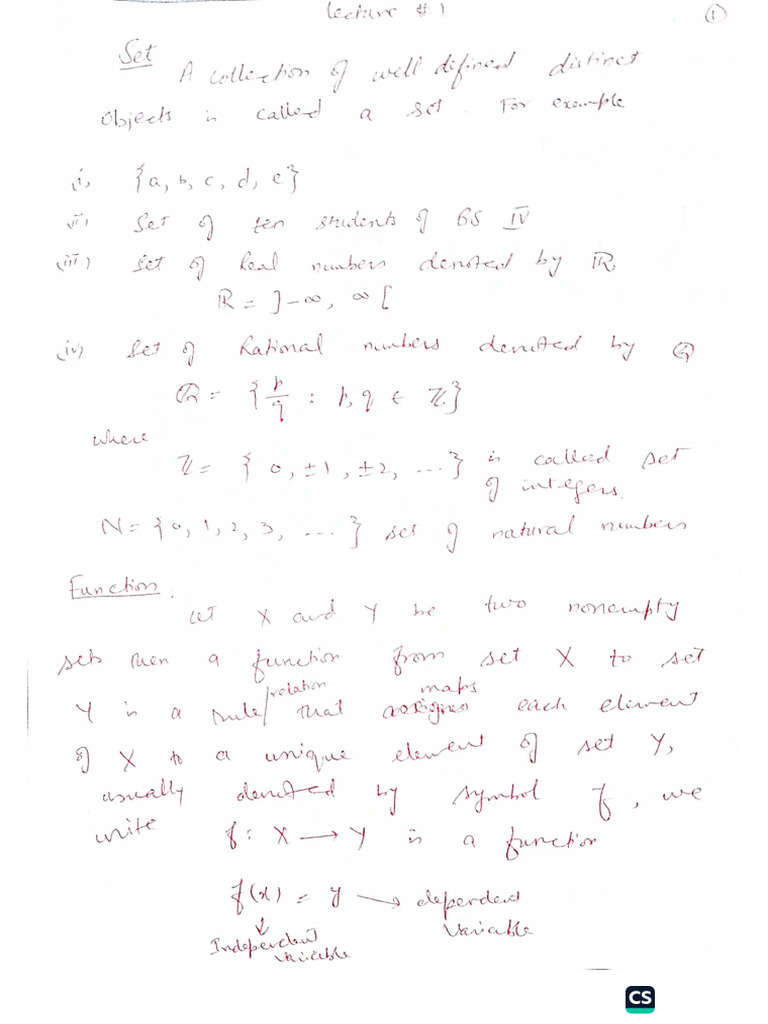 Lecture # 1
1
Set
A collection of well defined distinct
objects is called a set. For example
(i) {a, b, c, d, e}
(ii) Set of ten students of BS IV
(iii) Set of Real numbers denoted by ℝ
ℝ = ]-∞, ∞[
(iv) Set of Rational numbers denoted by ℚ
ℚ = {p/q : p, q ∈ ℤ}
where
ℤ = {0, ±1, ±2, ...} is called set
of integers.
N = {0, 1, 2, 3, ...} set of natural numbers
Function.
Let X and Y be two nonempty
sets then a function from set X to set
relation maps
Y is a rule/ that assigns each element
of X to a unique element of set Y,
usually denoted by symbol f, we
write f: X → Y is a function
f(x) = y → dependent
Variable
Independent
Variable
CS